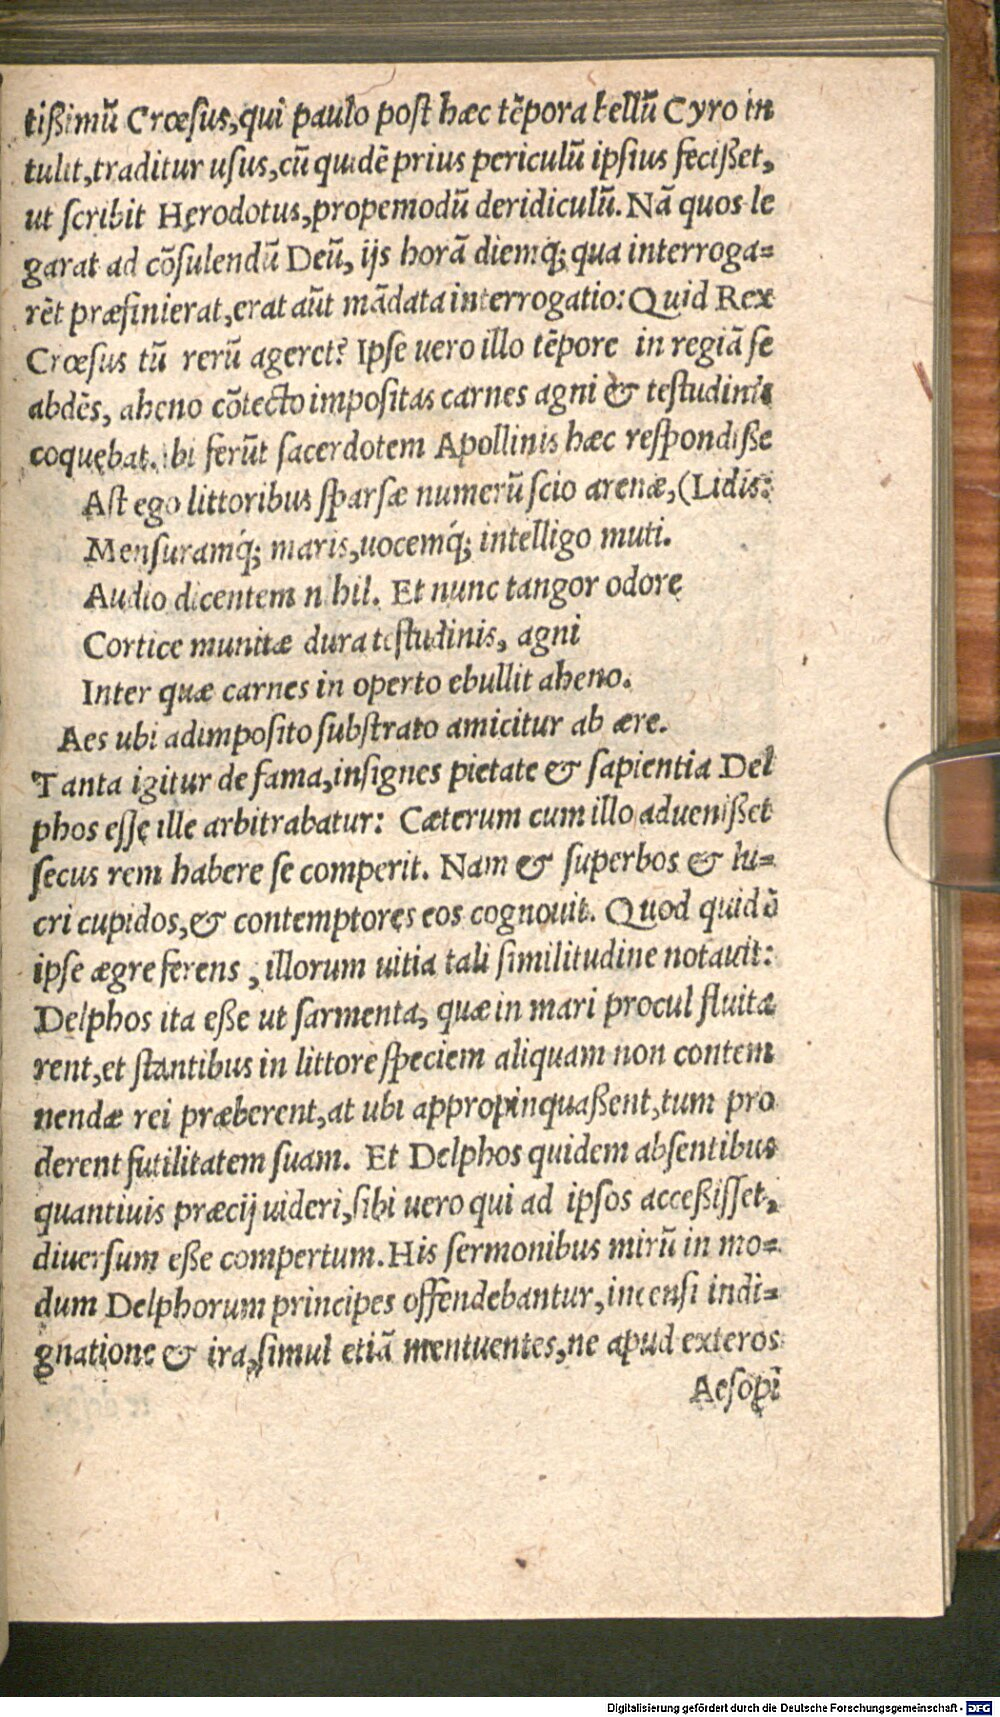 tißimū Crœsus, qui paulo post hæc tēpora bellū Cyro in
tulit, traditur usus, cū quidē prius periculū ipsius fecißet,
ut scribit Herodotus, propemodū deridiculū. Nā quos le
garat ad cōsulendū Deū, ijs horā diemq́; qua interroga=
rēt præfinierat, erat aūt mādata interrogatio: Quid Rex
Crœsus tū rerū ageret? Ipse uero illo tēpore in regiā se
abdēs, aheno cōtecto impositas carnes agni & testudinis
coquebat. ibi ferūt sacerdotem Apollinis hæc respondiße
Ast ego littoribus sparsæ numerū scio arenæ, (Lidis:
Mensuramq́; maris, uocemq́; intelligo muti.
Audio dicentem nihil. Et nunc tangor odore
Cortice munitæ dura testudinis, agni
Inter quæ carnes in operto ebullit aheno.
Aes ubi adimposito substrato amicitur ab ære.
Tanta igitur de fama, insignes pietate & sapientia Del
phos esse ille arbitrabatur: Cæterum cum illo aduenißet
secus rem habere se comperit. Nam & superbos & lu=
cri cupidos, & contemptores eos cognouit. Quod quidē
ipse ægre ferens, illorum uitia tali similitudine notauit:
Delphos ita eße ut sarmenta, quæ in mari procul fluita
rent, et stantibus in littore speciem aliquam non contem
nendæ rei præberent, at ubi appropinquaßent, tum pro
derent futilitatem suam. Et Delphos quidem absentibus
quantiuis præcij uideri, sibi uero qui ad ipsos acceßisset,
diuersum eße compertum. His sermonibus mirū in mo=
dum Delphorum principes offendebantur, incensi indi=
gnatione & ira, simul etiā mentuentes, ne apud exteros
Aesopi
Digitalisierung gefördert durch die Deutsche Forschungsgemeinschaft - DFG